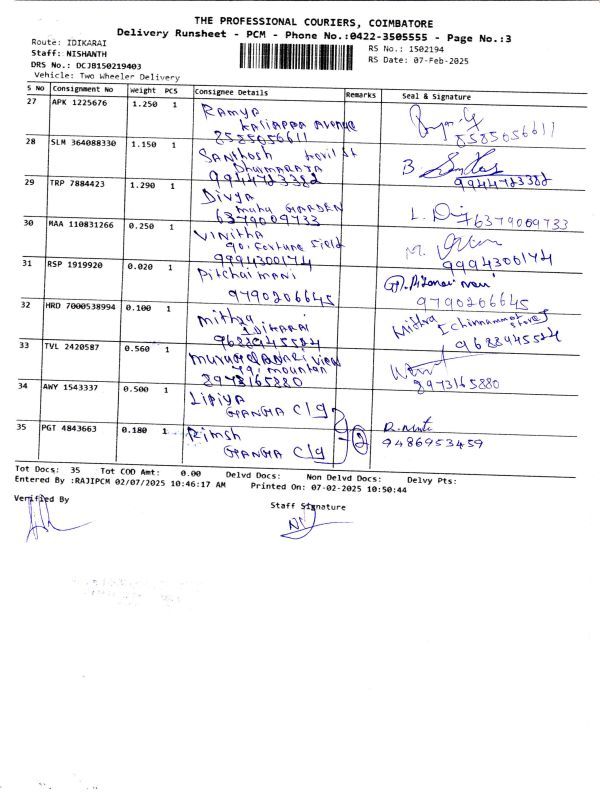 THE PROFESSIONAL COURIERS, COIMBATORE
Delivery Runsheet - PCM - Phone No.:0422-3505555 - Page No.:3
Route: IDIKARAI
RS No.: 1502194
Staff: NISHANTH
RS Date: 07-Feb-2025
DRS No.: DCJB150219403
Vehicle: Two Wheeler Delivery
S No Consignment No Weight PCS Consignee Details Remarks Seal & Signature
27 APK 1225676 1.250 1 Ramya
Kaliappa Avenue
8585056611 8585056611
28 SLM 364088330 1.150 1 Santhosh
Dhumaraja B.
9944723382 9944723382
29 TRP 7884423 1.290 1 Divya
GARDEN L.
6379009733 6379009733
30 MAA 110831266 0.250 1 Vinitha
90, Fortune Field M.
9994300174 9994300174
31 RSP 1919920 0.020 1 Pitchaimani
9790206645 9790206645
32 HRD 7000538994 0.100 1 Mithra Mithra
IDIKARAI I chinnammal stores
9688945524 9688945524
33 TVL 2420587 0.560 1 view
79, mountan
8973165880 8973165880
34 AWY 1543337 0.500 1 Lipiya
GANGA C/g
35 PGT 4843663 0.180 1 Rimsh
GANGA C/g 2 9486953459
Tot Docs: 35 Tot COD Amt: 0.00 Delvd Docs: Non Delvd Docs: Delvy Pts:
Entered By :RAJIPCM 02/07/2025 10:46:17 AM Printed On: 07-02-2025 10:50:44
Verified By
Staff Signature